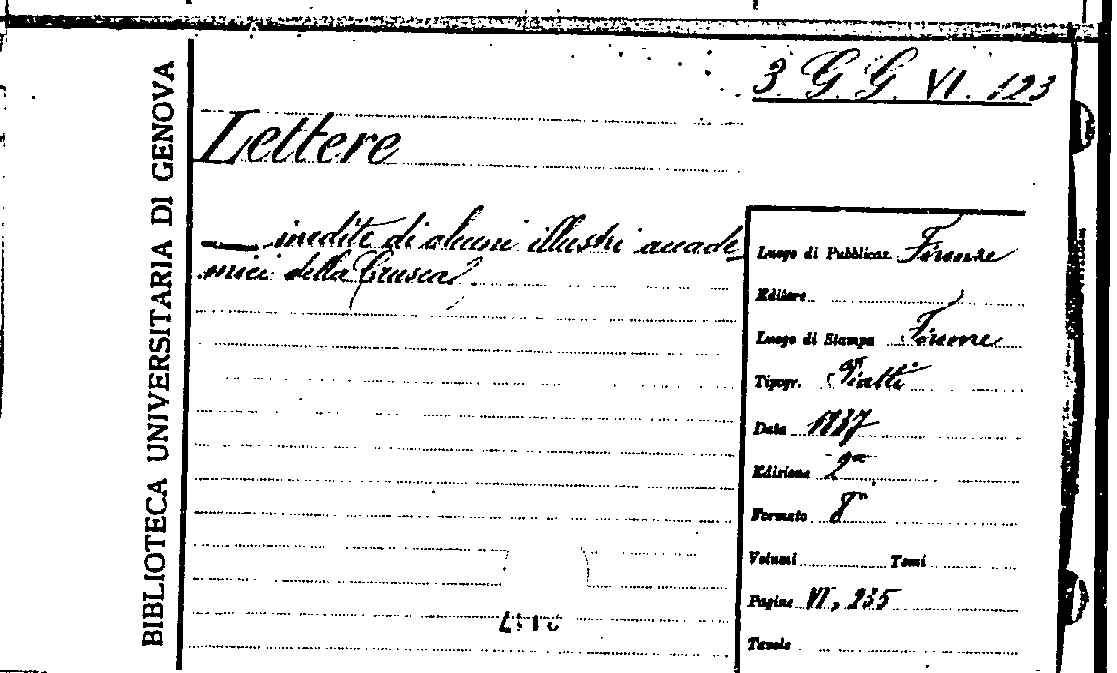 BIBLIOTECA UNIVERSITARIA DI GENOVA
3 G G VI. 123
Lettere
— inedite di alcuni illustri accade
mici della Crusca
Luogo di Pubblicaz. Firenze
Editore
Luogo di Stampa Firenze
Tipogr. Piatti
Data 1837
Edizione 2a
Formato 8°
Volumi Tomi
Pagine VI, 235
Tavole